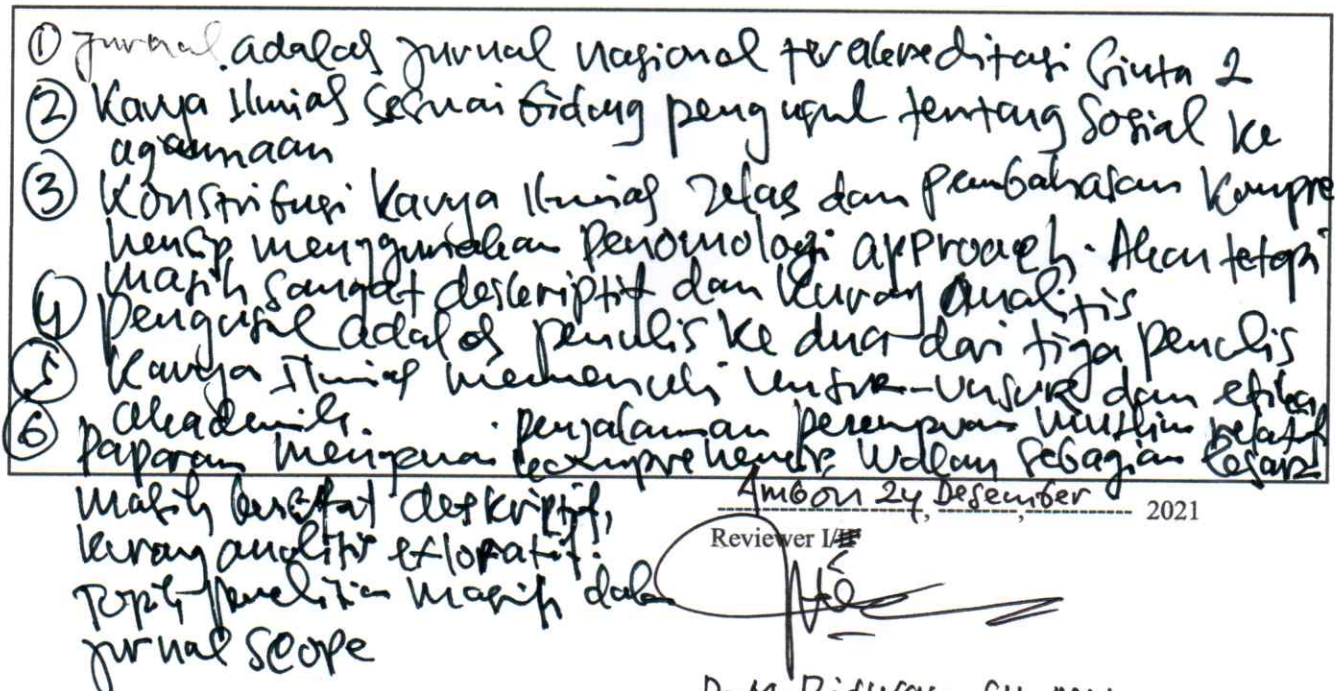 ① Jurnal adalah jurnal nasional terakreditasi Sinta 2
② Karya Ilmiah sesuai bidang pengusul tentang Sosial ke
agamaan
③ Konstribusi karya Ilmiah Jelas dan pembahasan kompre
hensip menggunakan Penomologi approach. Akan tetapi
masih sangat deskriptif dan kurang Analitis
④ Pengusul adalah penulis ke dua dari tiga penulis
⑤ Karya Ilmiah memenuhi unsur-unsur dan etika
akademik.
⑥ paparan mengenai pengalaman perempuan muslim relatif
komprehensip walau sebagian besar
masih bersifat deskriptif,
kurang analitis
Topik penelitian masih dalam
jurnal scope
Ambon 24, Desember 2021
Reviewer I/II